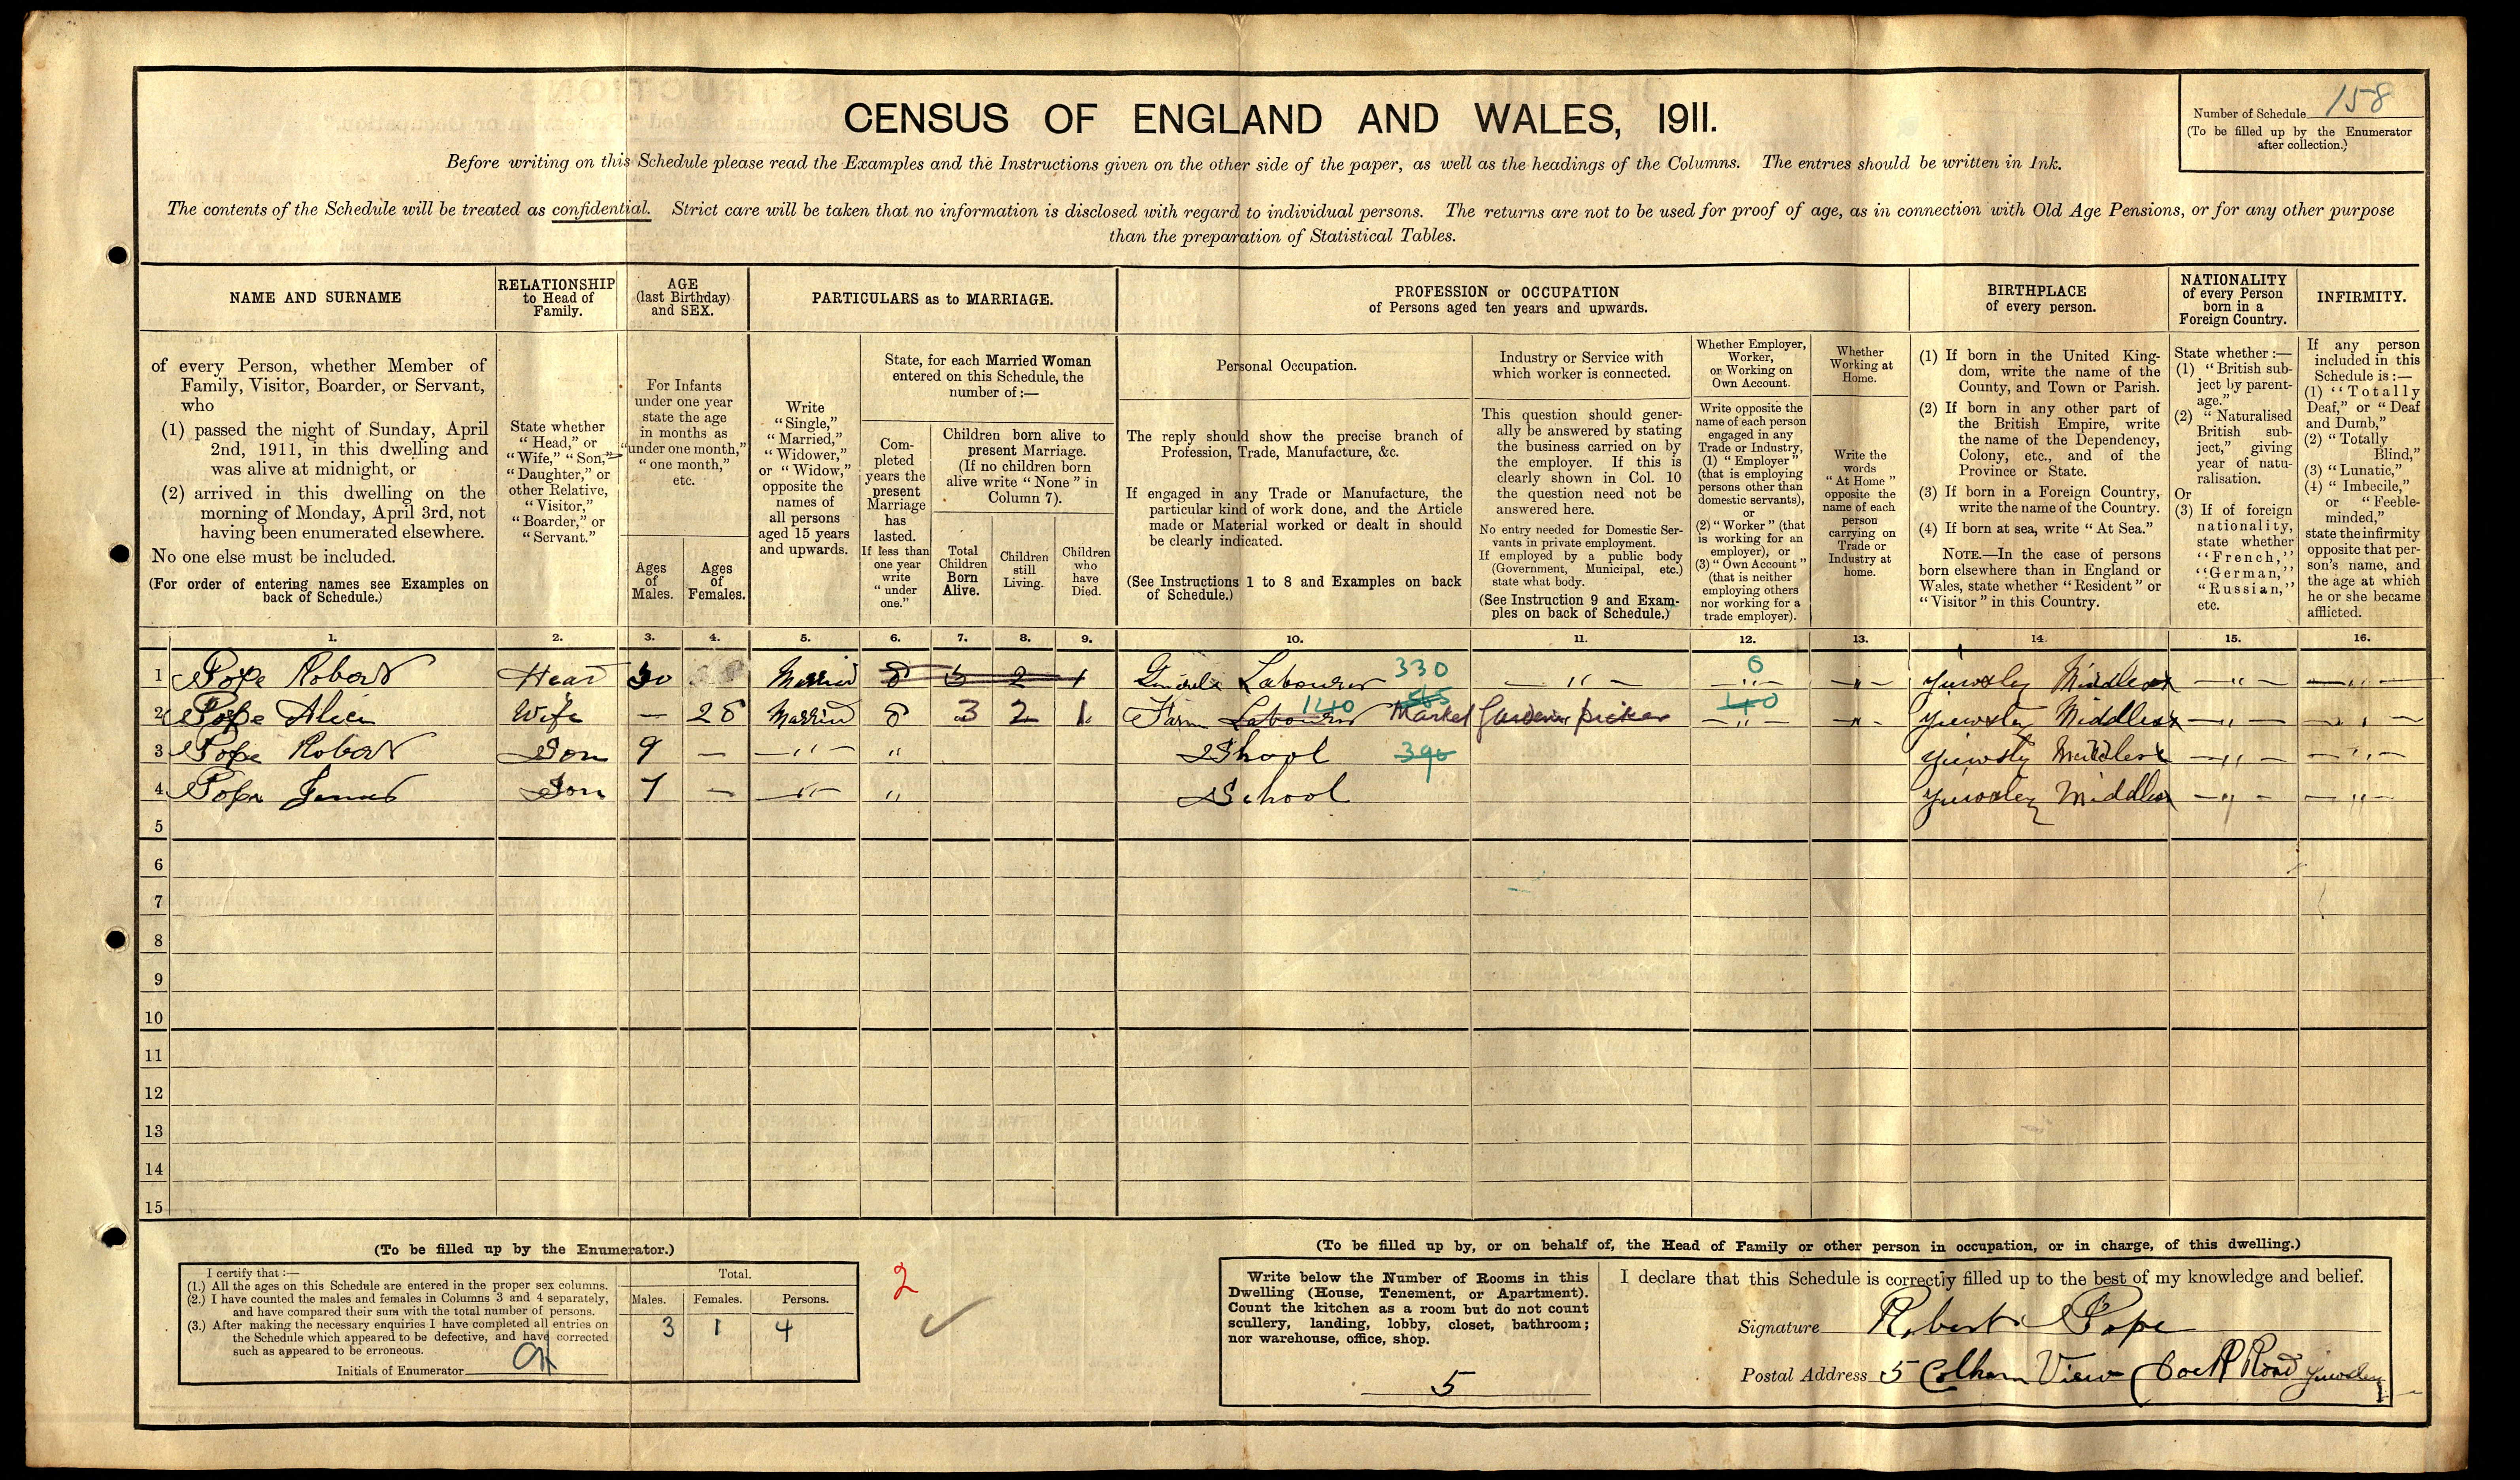 CENSUS OF ENGLAND AND WALES, 1911.
Number of Schedule 158
(To be filled up by the Enumerator
after collection.)
Before writing on this Schedule please read the Examples and the Instructions given on the other side of the paper, as well as the headings of the Columns. The entries should be written in Ink.
The contents of the Schedule will be treated as confidential. Strict care will be taken that no information is disclosed with regard to individual persons. The returns are not to be used for proof of age, as in connection with Old Age Pensions, or for any other purpose
than the preparation of Statistical Tables.
NAME AND SURNAME
of every Person, whether Member of
Family, Visitor, Boarder, or Servant,
who
(1) passed the night of Sunday, April
2nd, 1911, in this dwelling and
was alive at midnight, or
(2) arrived in this dwelling on the
morning of Monday, April 3rd, not
having been enumerated elsewhere.
No one else must be included.
(For order of entering names see Examples on
back of Schedule.)
RELATIONSHIP
to Head of
Family.
State whether
"Head," or
"Wife," "Son,"
"Daughter," or
other Relative,
"Visitor,"
"Boarder," or
"Servant."
AGE
(last Birthday)
and SEX.
For Infants
under one year
state the age
in months as
"under one month,"
"one month,"
etc.
Ages
of
Males.
Ages
of
Females.
PARTICULARS as to MARRIAGE.
Write
"Single,"
"Married,"
"Widower,"
or "Widow,"
opposite the
names of
all persons
aged 15 years
and upwards.
State, for each Married Woman
entered on this Schedule, the
number of :—
Com-
pleted
years the
present
Marriage
has
lasted.
If less than
one year
write
"under
one."
Children born alive to
present Marriage.
(If no children born
alive write "None" in
Column 7).
Total
Children
Born
Alive.
Children
still
Living.
Children
who
have
Died.
PROFESSION or OCCUPATION
of Persons aged ten years and upwards.
Personal Occupation.
The reply should show the precise branch of
Profession, Trade, Manufacture, &c.
If engaged in any Trade or Manufacture, the
particular kind of work done, and the Article
made or Material worked or dealt in should
be clearly indicated.
(See Instructions 1 to 8 and Examples on back
of Schedule.)
Industry or Service with
which worker is connected.
This question should gener-
ally be answered by stating
the business carried on by
the employer. If this is
clearly shown in Col. 10
the question need not be
answered here.
No entry needed for Domestic Ser-
vants in private employment.
If employed by a public body
(Government, Municipal, etc.)
state what body.
(See Instruction 9 and Exam-
ples on back of Schedule.)
Whether Employer,
Worker,
or Working on
Own Account.
Write opposite the
name of each person
engaged in any
Trade or Industry,
(1) "Employer"
(that is employing
persons other than
domestic servants),
or
(2) "Worker" (that
is working for an
employer), or
(3) "Own Account"
(that is neither
employing others
nor working for a
trade employer).
Whether
Working at
Home.
Write the
words
"At Home"
opposite the
name of each
person
carrying on
Trade or
Industry at
home.
BIRTHPLACE
of every person.
(1) If born in the United King-
dom, write the name of the
County, and Town or Parish.
(2) If born in any other part of
the British Empire, write
the name of the Dependency,
Colony, etc., and of the
Province or State.
(3) If born in a Foreign Country,
write the name of the Country.
(4) If born at sea, write "At Sea."
NOTE.—In the case of persons
born elsewhere than in England or
Wales, state whether "Resident" or
"Visitor" in this Country.
NATIONALITY
of every Person
born in a
Foreign Country.
State whether :—
(1) "British sub-
ject by parent-
age."
(2) "Naturalised
British sub-
ject," giving
year of natu-
ralisation.
Or
(3) If of foreign
nationality,
state whether
"French,"
"German,"
"Russian,"
etc.
INFIRMITY.
If any person
included in this
Schedule is :—
(1) "Totally
Deaf," or "Deaf
and Dumb,"
(2) "Totally
Blind,"
(3) "Lunatic,"
(4) "Imbecile,"
or "Feeble-
minded,"
state the infirmity
opposite that per-
son's name, and
the age at which
he or she became
afflicted.
1. 2. 3. 4. 5. 6. 7. 8. 9. 10. 11. 12. 13. 14. 15. 16.
1 Pope Robert Head 30 Married 8 3 2 1 Labourer 330 — " — 0 — " — Yiewsley Middlesex — " — — " —
2 Pope Alice Wife — 28 Married 8 3 2 1 Farm Labourer 140 Market Gardener picker 40 — " — Yiewsley Middlesex — " — — " —
3 Pope Robert Son 9 — — " — " Shool 390 Yiewsly Middlesex — " — — " —
4 Pope James Son 7 — — " — " School Yiewsley Middlesex — " — — " —
5
6
7
8
9
10
11
12
13
14
15
(To be filled up by the Enumerator.)
I certify that :—
(1.) All the ages on this Schedule are entered in the proper sex columns.
(2.) I have counted the males and females in Columns 3 and 4 separately,
and have compared their sum with the total number of persons.
(3.) After making the necessary enquiries I have completed all entries on
the Schedule which appeared to be defective, and have corrected
such as appeared to be erroneous.
Initials of Enumerator
Total.
Males. Females. Persons.
3 1 4
2
(To be filled up by, or on behalf of, the Head of Family or other person in occupation, or in charge, of this dwelling.)
Write below the Number of Rooms in this
Dwelling (House, Tenement, or Apartment).
Count the kitchen as a room but do not count
scullery, landing, lobby, closet, bathroom;
nor warehouse, office, shop.
5
I declare that this Schedule is correctly filled up to the best of my knowledge and belief.
Signature Robert Pope
Postal Address 5 Colham View Road Yiewsley